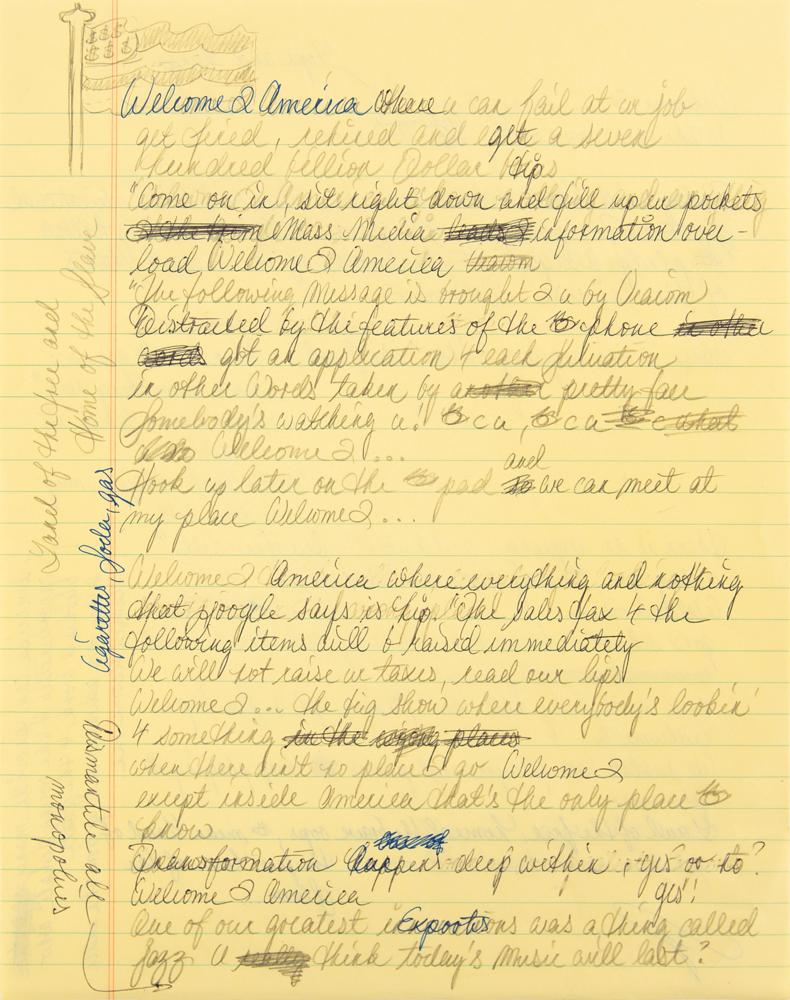 Welcome 2 America where u can fail at ur job
get fired, rehired and get a seven
hundred billion Dollar tip
"Come on in, sit right down and fill up ur pockets
Mass Media information over-
load Welcome 2 America
"The following message is brought 2 u by
Distracted by the features of the phone
got an application 4 each situation
in other words taken by a pretty face
Somebody's watching u! c u, c u
Welcome 2...
Hook up later on the pad and we can meet at
my place Welcome 2...
Welcome 2 America where everything and nothing
that google says is hip. "The sales tax 4 the
following items will b raised immediately
We will not raise ur taxes, read our lips
Welcome 2... the big show where everybody's lookin'
4 something in the wrong places
when there ain't no place 2 go Welcome 2
except inside America that's the only place
know
Transformation happens deep within, yes or no?
Welcome 2 America yes!
One of our greatest Exports was a thing called
Jazz U think today's music will last?
Land of the free and
Home of the Slave
Cigarettes, Soda, gas
Dismantle all
monopolies